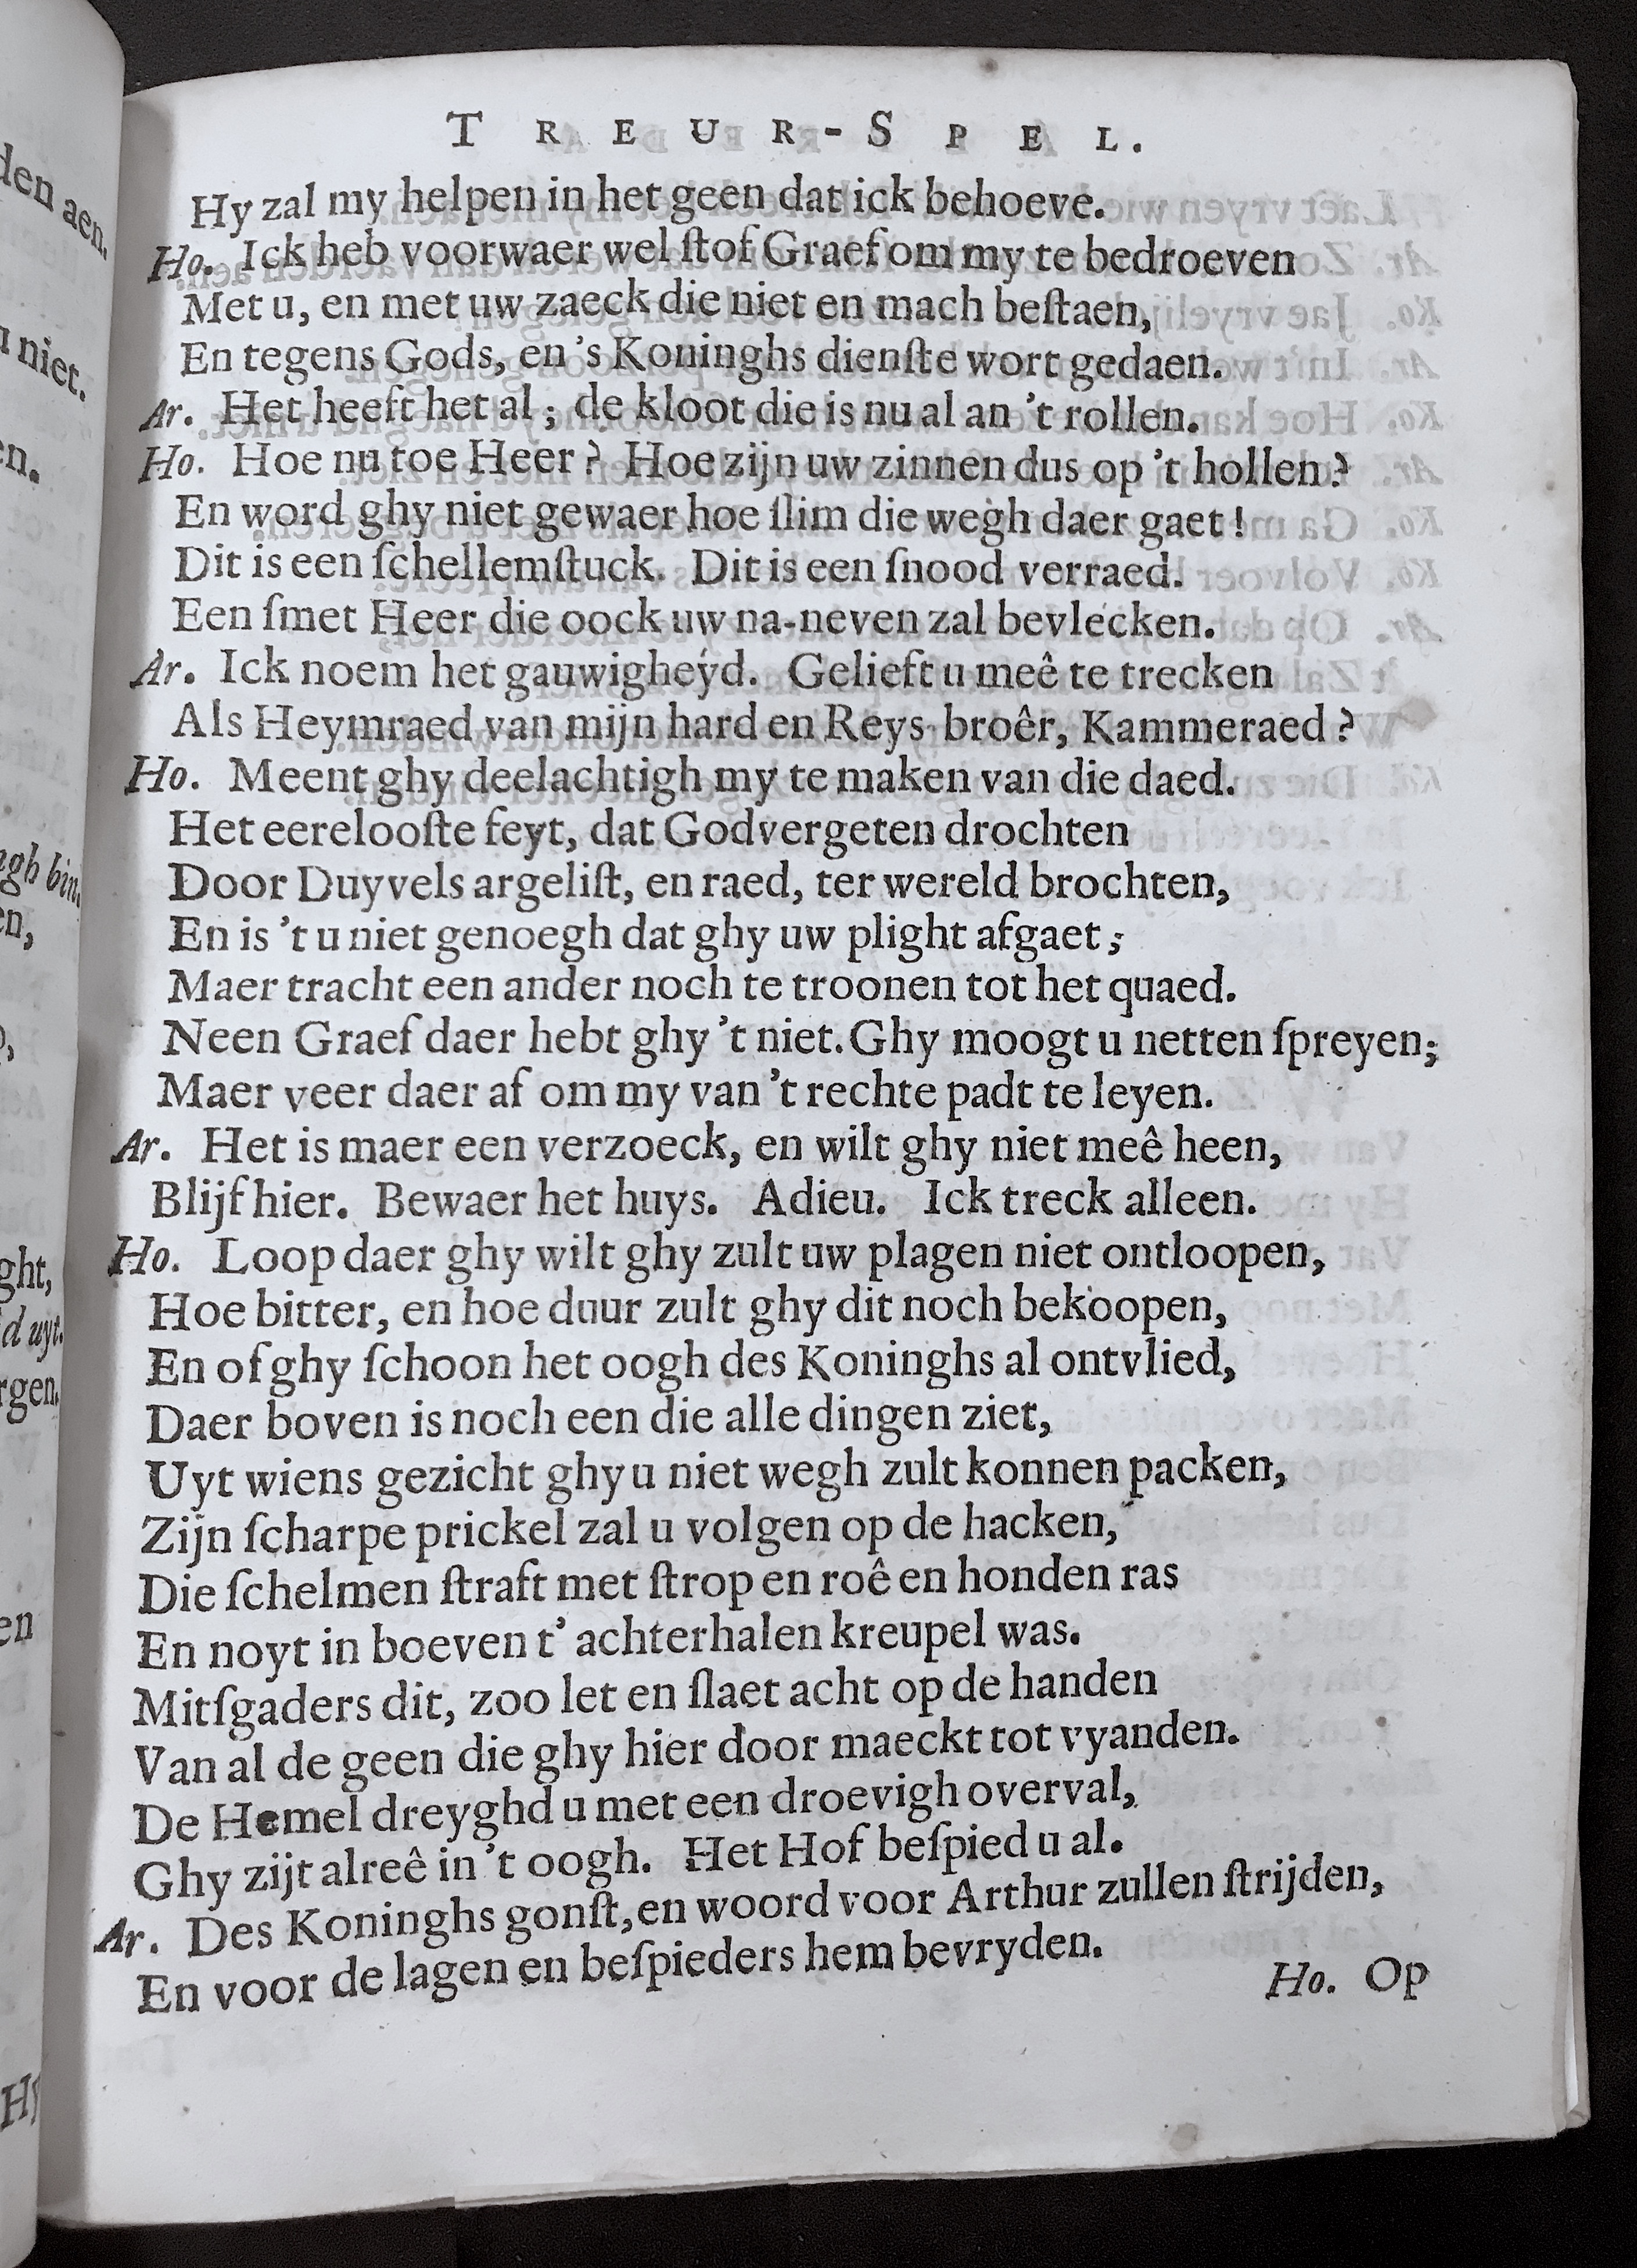 TREUR-SPEL.
Hy zal my helpen in het geen dat ick behoeve.
Ho. Ick heb voorwaer wel ſtof Graef om my te bedroeven
Met u, en met uw zaeck die niet en mach beſtaen,
En tegens Gods, en 's Koninghs dienſte wort gedaen.
Ar. Het heeft het al; de kloot die is nu al an 't rollen.
Ho. Hoe nu toe Heer? Hoe zijn uw zinnen dus op 't hollen?
En word ghy niet gewaer hoe ſlim die wegh daer gaet!
Dit is een ſchellemſtuck. Dit is een ſnood verraed.
Een ſmet Heer die oock uw na-neven zal bevlecken.
Ar. Ick noem het gauwigheyd. Gelieft u meê te trecken
Als Heymraed van mijn hard en Reys-broêr, Kammeraed?
Ho. Meent ghy deelachtigh my te maken van die daed.
Het eerelooſte feyt, dat Godvergeten drochten
Door Duyvels argeliſt, en raed, ter wereld brochten,
En is 't u niet genoegh dat ghy uw plight afgaet;
Maer tracht een ander noch te troonen tot het quaed.
Neen Graef daer hebt ghy 't niet. Ghy moogt u netten ſpreyen;
Maer veer daer af om my van 't rechte padt te leyen.
Ar. Het is maer een verzoeck, en wilt ghy niet meê heen,
Blijf hier. Bewaer het huys. Adieu. Ick treck alleen.
Ho. Loop daer ghy wilt ghy zult uw plagen niet ontloopen,
Hoe bitter, en hoe duur zult ghy dit noch bekoopen,
En of ghy ſchoon het oogh des Koninghs al ontvlied,
Daer boven is noch een die alle dingen ziet,
Uyt wiens gezicht ghy u niet wegh zult konnen packen,
Zijn ſcharpe prickel zal u volgen op de hacken,
Die ſchelmen ſtraft met ſtrop en roê en honden ras
En noyt in boeven t' achterhalen kreupel was.
Mitſgaders dit, zoo let en ſlaet acht op de handen
Van al de geen die ghy hier door maeckt tot vyanden.
De Hemel dreyghd u met een droevigh overval,
Ghy zijt alreê in 't oogh. Het Hof beſpied u al.
Ar. Des Koninghs gonſt, en woord voor Arthur zullen ſtrijden,
En voor de lagen en beſpieders hem bevryden.
Ho. Op